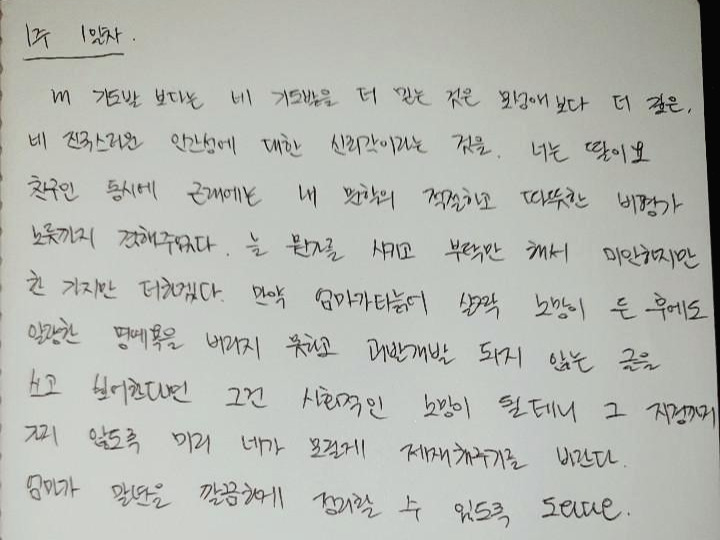 1주 1일차.
내 기도발 보다는 네 기도발을 더 믿는 것은 모성애보다 더 짙은,
네 진국스러운 인간성에 대한 신뢰감이라는 것을. 너는 딸이오
친구인 동시에 근래에는 내 문학의 적절하고 따뜻한 비평가
노릇까지 겸해주었다. 늘 뭔가를 시키고 부탁만 해서 미안하지만
한 가지만 더하겠다. 만약 엄마가 더 늙어 살짝 노망이 든 후에도
알량한 명예욕을 버리지 못하고 괴발개발 되지 않는 글을
쓰고 싶어한다면 그건 사회적인 노망이 될테니 그 지경까지
가지 않도록 미리 네가 모질게 제재해주기를 바란다.
엄마가 말년을 깔끔하게 정리할 수 있도록 도와다오.